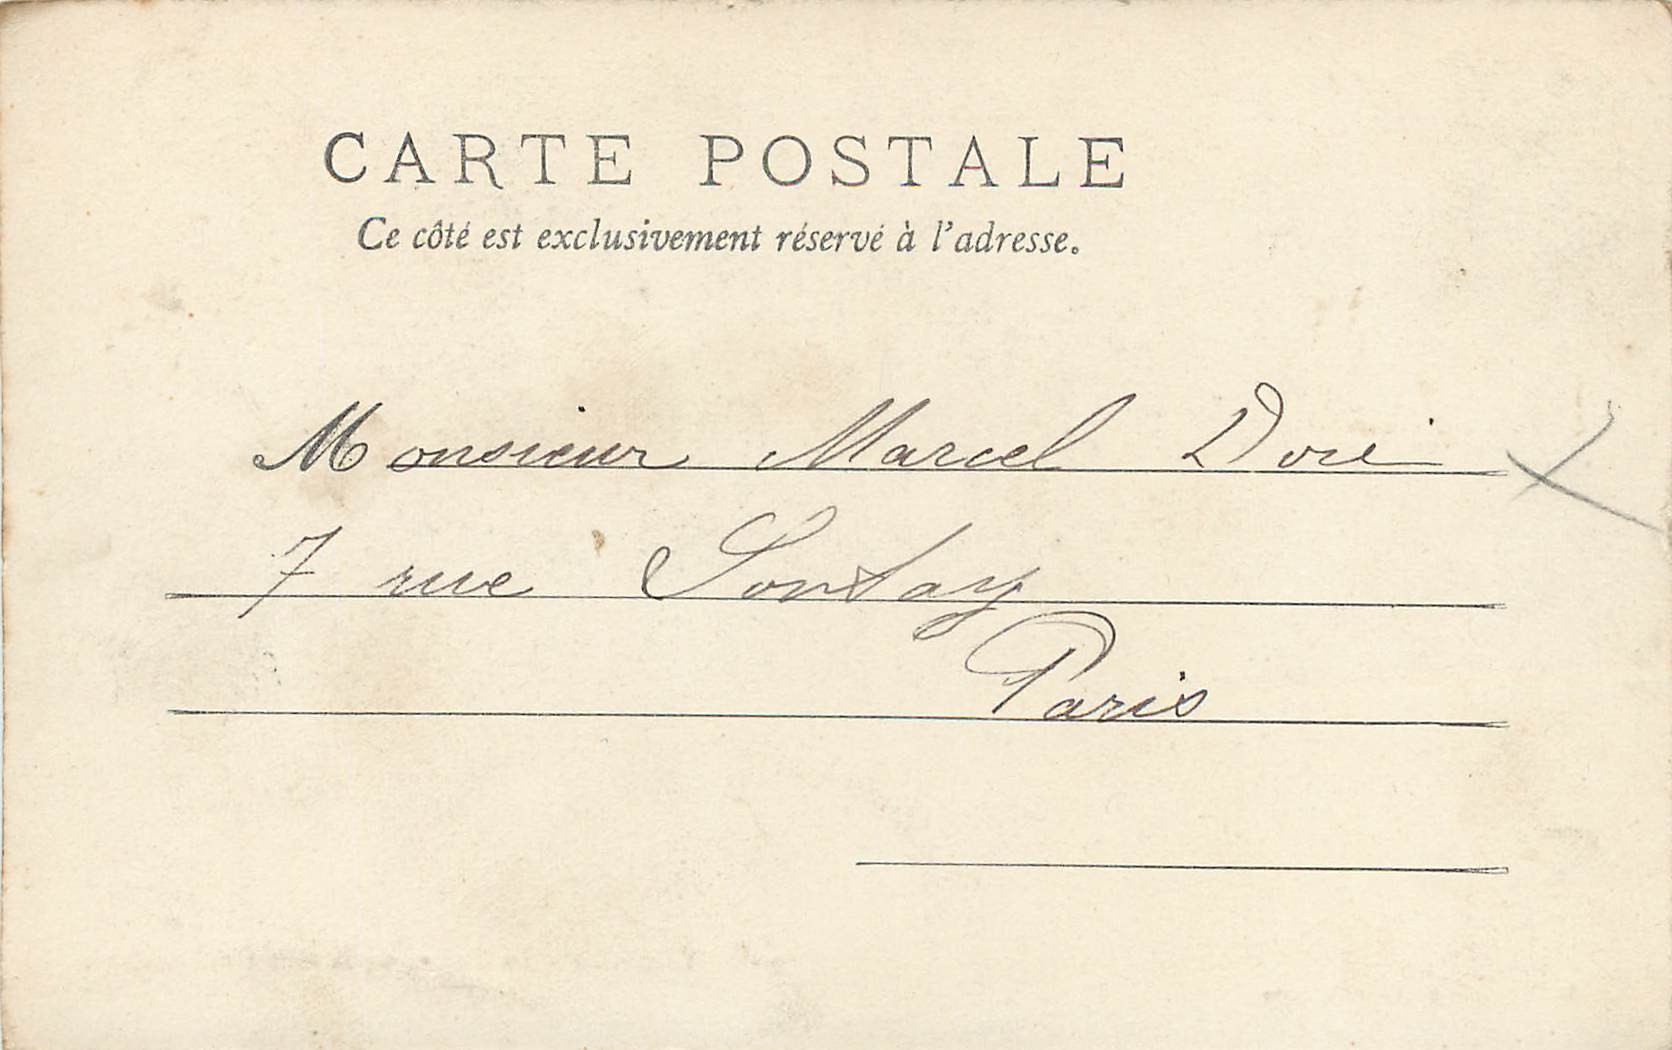 CARTE POSTALE
Ce côté est exclusivement réservé à l'adresse.
Monsieur Marcel Doré
7 rue Sontay
Paris